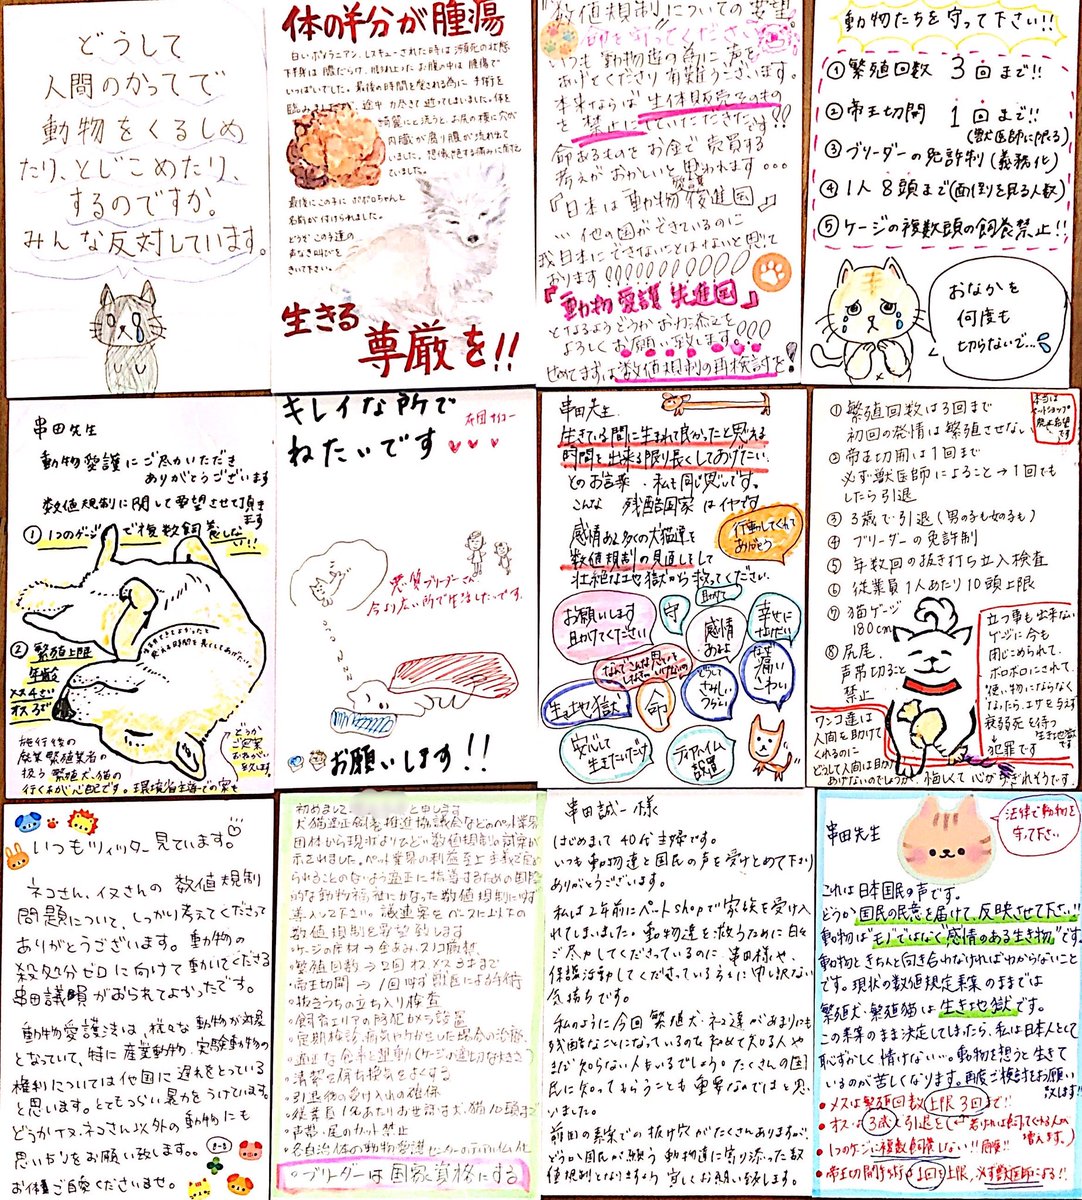 どうして
人間のかってで
動物をくるしめ
たり、とじこめたり、
するのですか。
みんな反対しています。
体の半分が腫瘍
白いポメラニアン、レスキューされた時は瀕死の状態
いっぱいでした。最後の時間を
最後にこの子にポポロちゃんと
名前が付けられました。
どうぞこの子達の
声なき叫びを
きいて下さい。
生きる
尊厳を!!
"数値規制"についての要望
命を守ってください
いつも動物達の為に、声を
あげてくださり有難うございます。
本来ならば生体販売そのもの
を禁止にしていただきたいです!!
命あるものをお金で売買する
考えがおかしいと思われます…
『日本は動物愛護後進国』
…他の国ができているのに
我日本にできないことはないと思って
おります
『動物愛護先進国』
となるようどうかお力添えを
よろしくお願い致します。!!!
せめてまずは数値規制の再検討を!
動物たちを守って下さい!!
①繁殖回数 3回まで!!
②帝王切開 1回まで!!
(獣医師に限る)
③ブリーダーの免許制(義務化)
④1人8頭まで(面倒を見る人数)
⑤ケージの複数頭の飼養禁止!!
おなかを
何度も
切らないで…
串田先生
動物愛護にご尽力いただき
ありがとうございます
数値規制に関して要望させて頂きます
①1つのゲージで複数飼養しない!!
②繁殖上限
年齢
メス4さい
オス3才
どうか
ご尽力
おねがい
致します。
施行後の
廃業繁殖業者の
扱う繁殖犬、猫の
行くあが心配です。環境省主導での策も
キレイな所で
ねたいです
悪質ブリーダーさん
今より広い所で生活したいです。
お願いします!!
串田先生
生きている間に生まれて良かったと思える
時間を出来る限り長くしてあげたい。
とのお言葉、私も同じ思いです。
こんな 残酷国家はイヤです
感情ある多くの犬猫達を
数値規制の見直しをして
壮絶な地獄から救ってください。
行動してくれて
ありがとう
お願いします
助けてください
守
助けて
感情
あるよ
幸せに
なりたい
なんでこんな思いを
しなきゃいけないの
どうして
さみしい
つらい
なぜ
痛い
こわい
生き地獄
命
安心して
生きたいだけ
ティアハイム
設置
①繁殖回数は3回まで
初回の発情は繁殖させない
②帝王切開は1回まで
必ず獣医師によること→1回でも
したら引退
③3歳で引退(男の子も女の子も)
④ブリーダーの免許制
⑤年数回の抜き打ち立入検査
⑥従業員1人あたり10頭上限
⑦猫ゲージ
180cm
⑧尻尾、
声帯切ること
禁止
本当は
ペットショップ
廃止希望
です
立つ事も出来ない
ゲージに今も
閉じこめられて、
ボロボロにされて、
使い物にならなく
なったら、エサを与えず
衰弱死を待つ
生き地獄です
犯罪です
ワンコ達は
人間を助けて
くれるのに
どうして人間は助け
あげないのでしょうか、悔しくて心がちぎれそうです
いつもツイッター見ています。♡
ネコさん、イヌさんの数値規制
問題について、しっかり考えてくださって
ありがとうございます。動物の
殺処分ゼロに向けて動いてくださる
串田議員がおられてよかったです。
動物愛護法は、様々な動物が対象
となっていて、特に産業動物、実験動物の
権利については他国に遅れをとっている
と思います。とてもつらい暴力をうけています。
どうかイヌ、ネコさん以外の動物にも
思いやりをお願い致します。
お体ご自愛くださいませ。
初めまして、 と申します
犬猫適正飼養推進協議会などのペット業界
団体から現状よりひどい数値規制の試案が
示されました。ペット業界の利益至上主義で
られることのないよう適正に指導するための国際
的な動物福祉にかなった数値規制に必ず
導入して下さい。議連案をベースに以下の
数値規制を要望致します
・ケージの床材→金あみ、スノコ廃止
・繁殖回数→2回 オス、メス 3才まで
・帝王切開→1回 必ず獣医による手術
・抜きうちの立ち入り検査
・飼育エリアの防犯カメラ設置
・定期検診、病気やケガをした場合の治療
・適正な食事と運動(ケージの適切な大きさ)
・清潔を保ち換気をよくする
・引退後の受け入れの確保
・従業員1名あたりお世話は犬、猫10頭まで
・声帯、尾のカット禁止
・各自治体の動物愛護センターのティアハイム化
・ブリーダーは国家資格にする
串田誠一様
はじめまして 40代主婦です。
いつも動物達と国民の声を受けとめて下さり
ありがとうございます。
私は2年前にペットshopで家族を受け入
れてしまいました。動物達を救うために日々
ご尽力してくださっているのに、串田様や、
保護活動してくださっている方々に申し訳ない
気持ちです。
私のように今回繁殖犬・ネコ達があまりにも
残酷なことになっているのも初めて知る人や
まだ知らない人もいるでしょう。たくさんの国
民に知ってもらうことも重要なのではと思
いました。
前回の素案での抜け穴がたくさんありますが、
どうか国民が願う動物達に寄り添った数
値規制となりますよう宜しくお願い致します。
串田先生
法律で動物を
守って下さい
これは日本国民の声です。
どうか国民の民意を届けて、反映させて下さい!!
動物は"モノ"ではなく"感情のある生き物"です。
動物ときちんと向き合わなければわからないこと
です。現状の数値規定素案のままでは
繁殖犬・繁殖猫は生き地獄です。
この素案のまま決定してしまったら、私は日本人として
恥ずかしく情けない…。動物を想うと生きて
いるのが苦しくなります。再度ご検討をお願い
致します!!
・メスは繁殖回数上限3回まで!!
・オスは3歳で引退をして
・1つのケージに複数飼養しない!!
・帝王切開も1回上限、必ず獣医師による!!